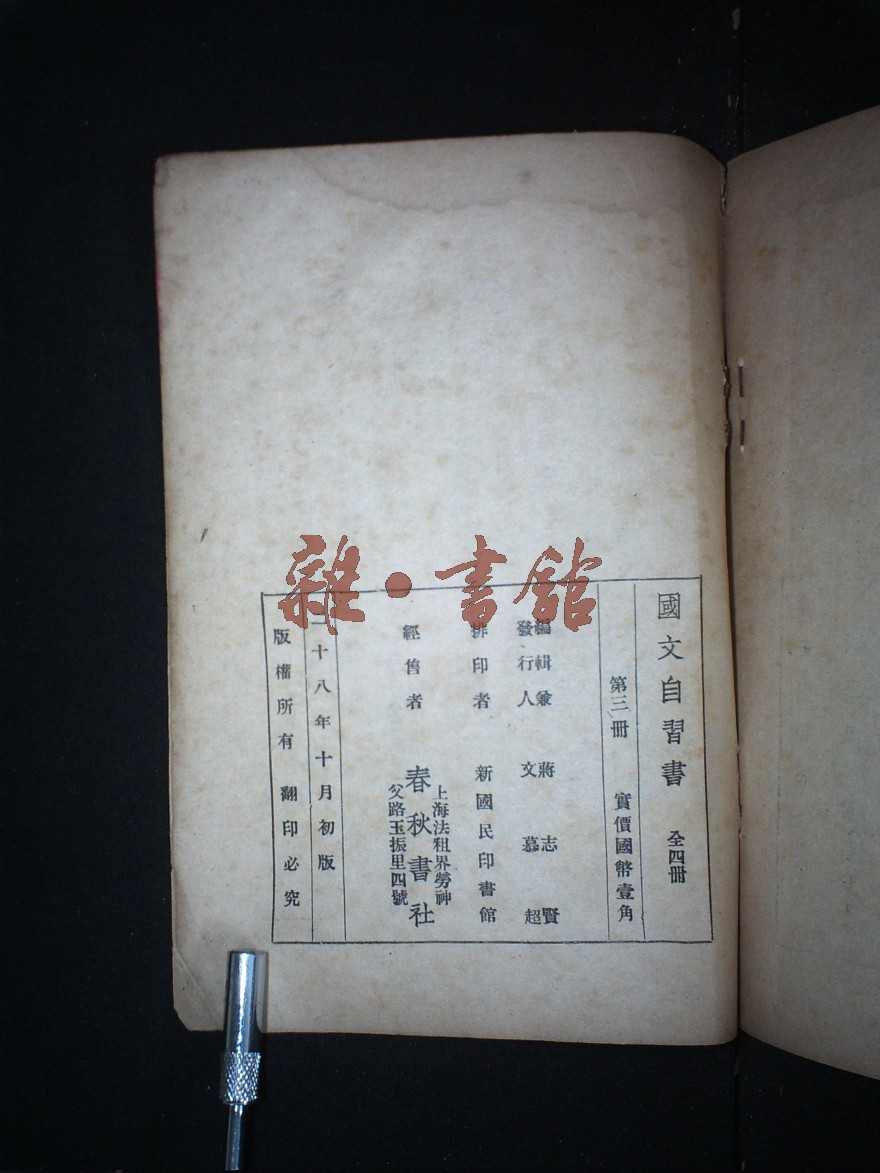 國文自習書 全四冊
第三冊 實價國幣壹角
編輯兼 蔣志賢
發行人 文慕超
排印者 新國民印書館
上海法租界勞神
經售者 春秋書社
父路玉振里四號
二十八年十月初版
版權所有 翻印必究
雜·書館